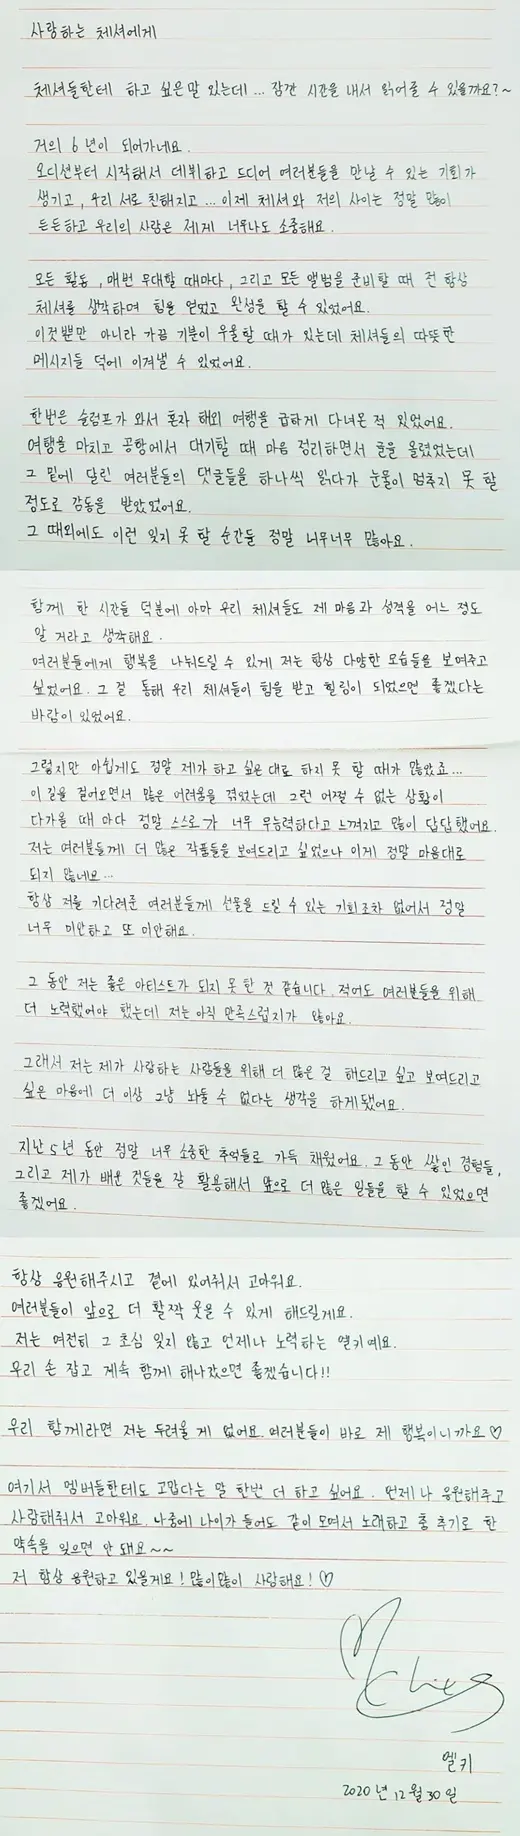 사랑하는 체셔에게
체셔들한테 하고 싶은말 있는데... 잠깐 시간을 내서 읽어줄 수 있을까요?~
거의 6년이 되어가네요.
오디션부터 시작해서 데뷔하고 드디어 여러분들을 만날 수 있는 기회가
생기고, 우리 서로 친해지고... 이제 체셔와 저의 사이는 정말 많이
든든하고 우리의 사랑은 제게 너무나도 소중해요.
모든 활동, 매번 무대할 때마다, 그리고 모든 앨범을 준비할 때 전 항상
체셔를 생각하며 힘을 얻었고 완성을 할 수 있었어요.
이것뿐만 아니라 가끔 기분이 우울할 때가 있는데 체셔들의 따뜻한
메시지들 덕에 이겨낼 수 있었어요.
한번은 슬럼프가 와서 혼자 해외 여행을 급하게 다녀온 적 있었어요.
여행을 마치고 공항에서 대기할 때 마음 정리하면서 글을 올렸었는데
그 밑에 달린 여러분들의 댓글들을 하나씩 읽다가 눈물이 멈추지 못 할
정도로 감동을 받았었어요.
그 때외에도 이런 잊지 못 할 순간들 정말 너무너무 많아요.
함께 한 시간들 덕분에 아마 우리 체셔들도 제 마음과 성격을 어느 정도
알 거라고 생각해요.
여러분들에게 행복을 나눠드릴 수 있게 저는 항상 다양한 모습들을 보여주고
싶었어요. 그 걸 통해 우리 체셔들이 힘을 받고 힐링이 되었으면 좋겠다는
바람이 있었어요.
그렇지만 아쉽게도 정말 제가 하고 싶은 대로 하지 못 할 때가 많았죠...
이 길을 걸어오면서 많은 어려움을 겪었는데 그런 어쩔 수 없는 상황이
다가올 때 마다 정말 스스로가 너무 무능력하다고 느껴지고 많이 답답했어요.
저는 여러분들께 더 많은 작품들을 보여드리고 싶었으나 이게 정말 마음대로
되지 않네요...
항상 저를 기다려준 여러분들께 선물을 드릴 수 있는 기회조차 없어서 정말
너무 미안하고 또 미안해요.
그 동안 저는 좋은 아티스트가 되지 못 한 것 같습니다. 적어도 여러분들을 위해
더 노력했어야 했는데 저는 아직 만족스럽지가 않아요.
그래서 저는 제가 사랑하는 사람들을 위해 더 많은 걸 해드리고 싶고 보여드리고
싶은 마음에 더 이상 그냥 놔둘 수 없다는 생각을 하게됐어요.
지난 5년 동안 정말 너무 소중한 추억들로 가득 채웠어요. 그 동안 쌓인 경험들,
그리고 제가 배운 것들을 잘 활용해서 앞으로 더 많은 일들을 할 수 있었으면
좋겠어요.
항상 응원해주시고 곁에 있어줘서 고마워요.
여러분들이 앞으로 더 활짝 웃을 수 있게 해드릴게요.
저는 여전히 그 초심 잊지 않고 언제나 노력하는 엘키예요.
우리 손 잡고 계속 함께 해나갔으면 좋겠습니다!!
우리 함께라면 저는 두려울 게 없어요. 여러분들이 바로 제 행복이니까요♡
여기서 멤버들한테도 고맙다는 말 한번 더 하고 싶어요. 언제나 응원해주고
사랑해줘서 고마워요. 나중에 나이가 들어도 같이 모여서 노래하고 춤 추기로 한
약속을 잊으면 안 돼요~~
저 항상 응원하고 있을게요! 많이많이 사랑해요!♡
엘키
2020년 12월 30일